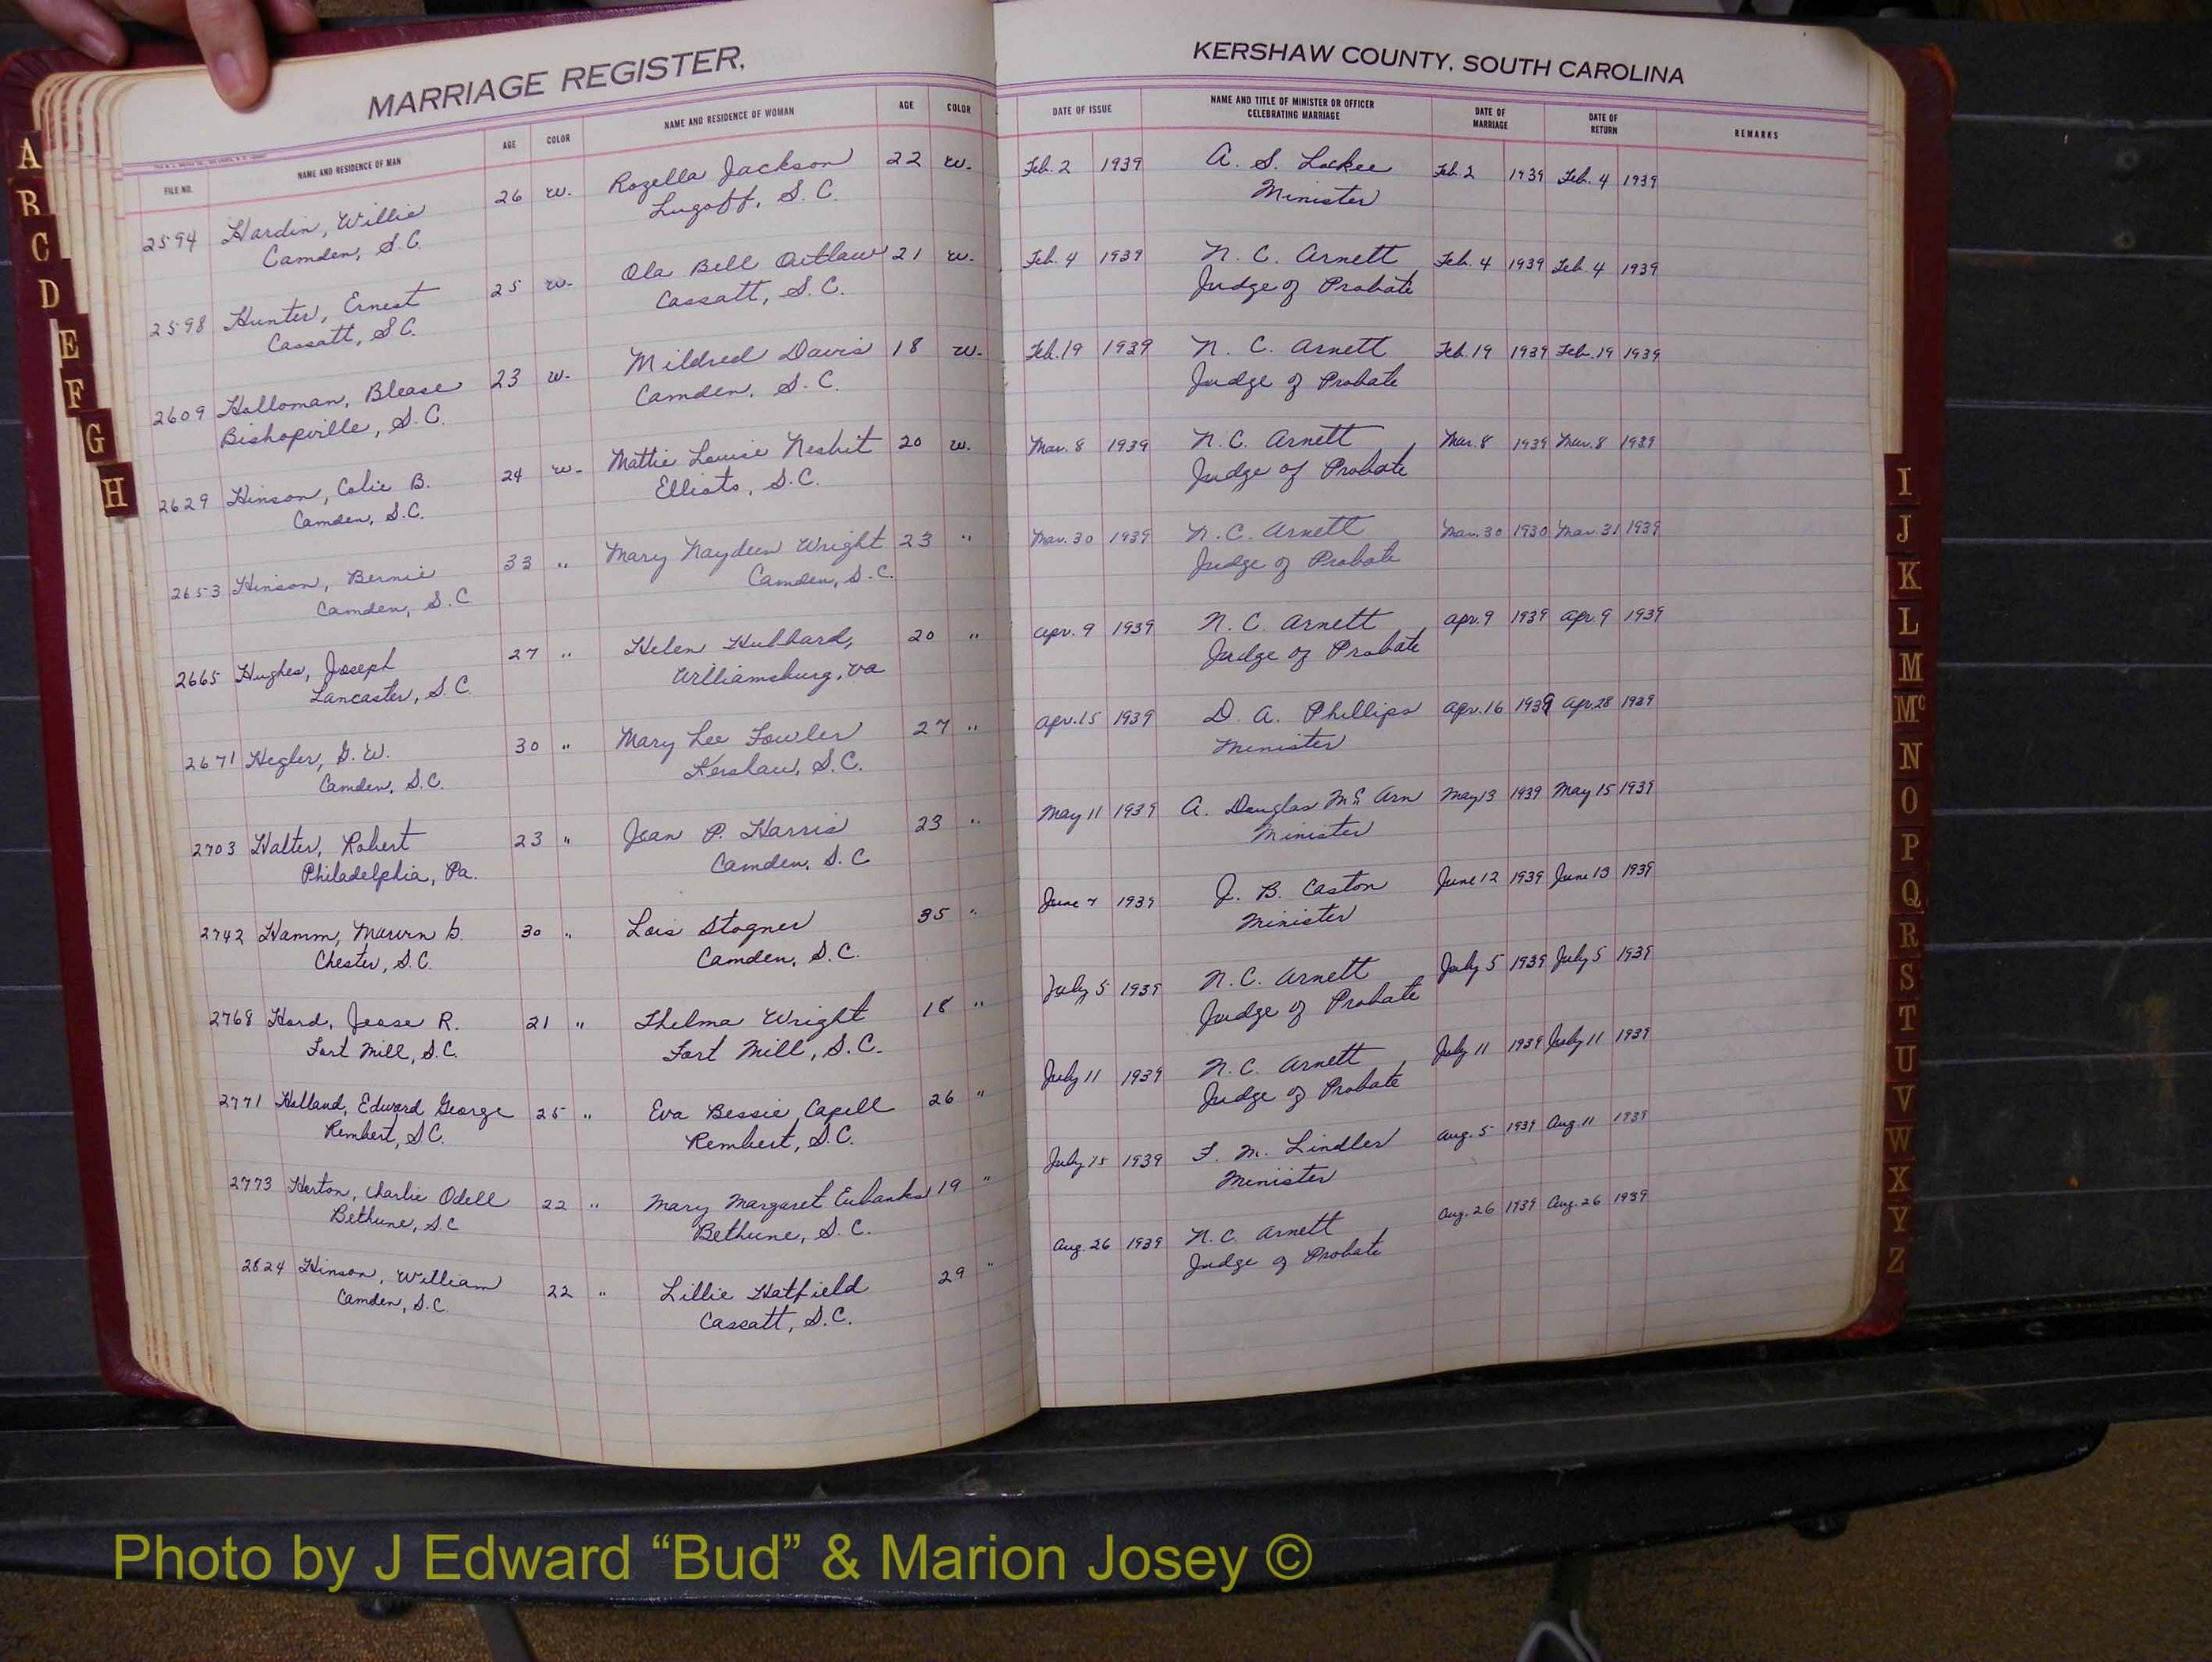 MARRIAGE REGISTER,
KERSHAW COUNTY, SOUTH CAROLINA
FILE NO. NAME AND RESIDENCE OF MAN AGE COLOR NAME AND RESIDENCE OF WOMAN AGE COLOR DATE OF ISSUE NAME AND TITLE OF MINISTER OR OFFICER CELEBRATING MARRIAGE DATE OF MARRIAGE DATE OF RETURN REMARKS
2594 Hardin, Willie 26 w. Rozella Jackson 22 w. Feb. 2 1939 A. S. Lockee Feb. 2 1939 Feb. 4 1939
Camden, S.C. Lugoff, S.C. Minister
2598 Hunter, Ernest 25 w. Ola Bell Outlaw 21 w. Feb. 4 1939 N. C. Arnett Feb. 4 1939 Feb. 4 1939
Cassatt, S.C. Cassatt, S.C. Judge of Probate
2609 Holloman, Blease 23 w. Mildred Davis 18 w. Feb. 19 1939 N. C. Arnett Feb. 19 1939 Feb. 19 1939
Bishopville, S.C. Camden, S.C. Judge of Probate
2629 Hinson, Colie B. 24 w. Mattie Louise Nesbit 20 w. Mar. 8 1939 N.C. Arnett Mar. 8 1939 Mar. 8 1939
Camden, S.C. Elliots, S.C. Judge of Probate
2653 Hinson, Bernie 33 " Mary Naydeen Wright 23 " Mar. 30 1939 N.C. Arnett Mar. 30 1930 Mar. 31 1939
Camden, S.C Camden, S.C. Judge of Probate
2665 Hughes, Joseph 27 " Helen Hubbard, 20 " Apr. 9 1939 N. C. Arnett Apr. 9 1939 Apr. 9 1939
Lancaster, S.C. Williamsburg, Va Judge of Probate
2671 Hegler, G. W. 30 " Mary Lee Fowler 27 " Apr. 15 1939 D. A. Phillips Apr. 16 1939 Apr. 28 1939
Camden, S.C. Kershaw, S.C. Minister
2703 Halter, Robert 23 " Jean P. Harris 23 " May 11 1939 A. Douglas McArn May 13 1939 May 15 1939
Philadelphia, Pa. Camden, S.C Minister
2742 Hamm, Marvin G. 30 " Lois Stogner 35 " June 7 1939 J. B. Caston June 12 1939 June 13 1939
Chester, S.C. Camden, S.C. Minister
2768 Hord, Jesse R. 21 " Thelma Wright 18 " July 5 1939 N.C. Arnett July 5 1939 July 5 1939
Fort Mill, S.C. Fort Mill, S.C. Judge of Probate
2771 Holland, Edward George 25 " Eva Bessie Capell 26 " July 11 1939 N.C. Arnett July 11 1939 July 11 1939
Rembert, S.C. Rembert, S.C. Judge of Probate
2773 Horton, Charlie Odell 22 " Mary Margaret Eubanks 19 " July 15 1939 F. M. Lindler Aug. 5 1939 Aug. 11 1939
Bethune, S.C Bethune, S.C. Minister
2824 Hinson, William 22 " Lillie Hatfield 29 " Aug. 26 1939 N.C. Arnett Aug. 26 1939 Aug. 26 1939
Camden, S.C. Cassatt, S.C. Judge of Probate
A
B
C
D
E
F
G
H
I
J
K
L
M
Mc
N
O
P
Q
R
S
T
U
V
W
X
Y
Z
Photo by J Edward “Bud” & Marion Josey ©